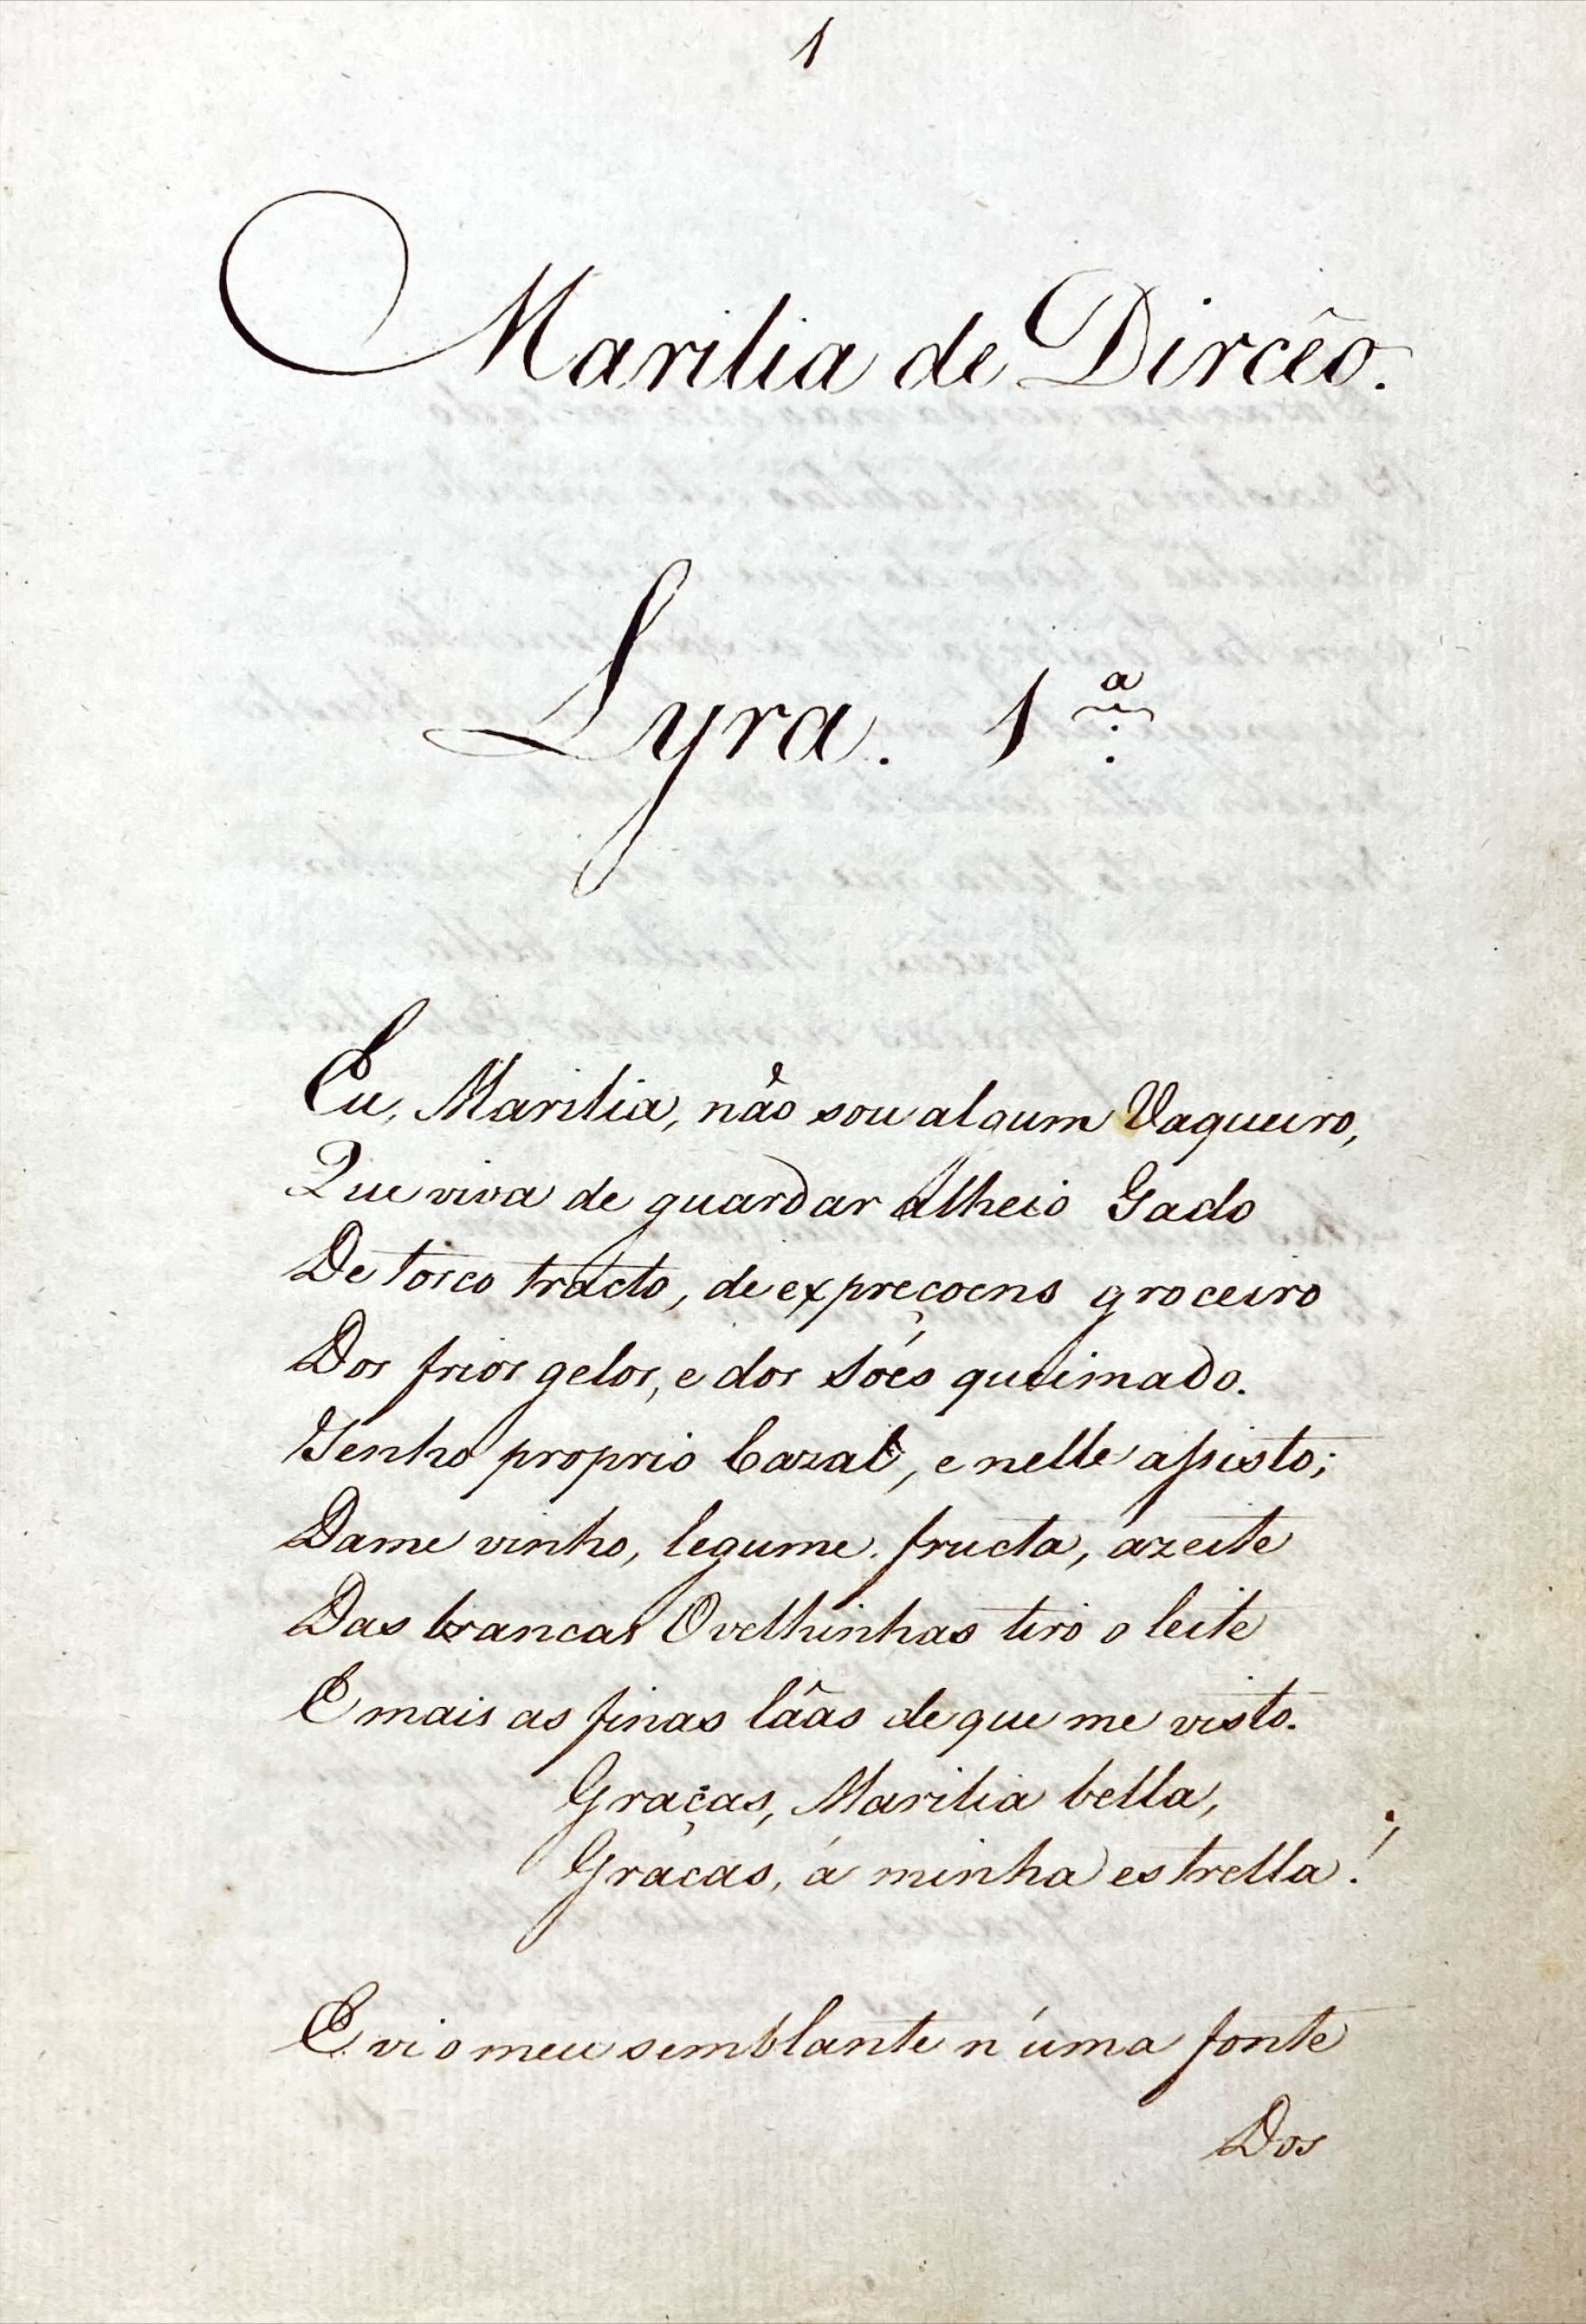 1
Marilia de Dircêo.
Lyra. 1ª
Eu, Marilia, não sou algum Vaqueiro,
Que viva de guardar alheio Gado
De tosco tracto, de expreçoens groceiro
Dos frios gelos, e dos sóes queimado.
Tenho proprio Cazal, e nelle assisto;
Dame vinho, legume, fructa, azeite
Das brancas Ovelhinhas tiro o leite
E mais as finas lâas de que me visto.
Graças, Marilia bella,
Graças, á minha estrella!
E vi o meu semblante n'uma fonte
Dos